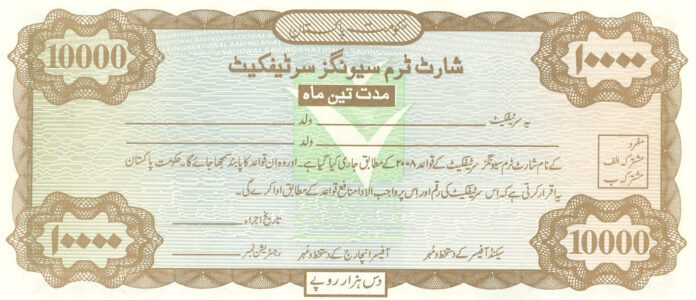 حکومت پاکستان
10000
۱۰۰۰۰
NATIONAL SAVINGS NATIONAL SAVINGS
شارٹ ٹرم سیونگز سرٹیفکیٹ
مدت تین ماہ
یہ سرٹیفکیٹ ولد
ولد
مفرد
مشترکہ الف
مشترکہ ب
کے نام شارٹ ٹرم سیونگز سرٹیفکیٹ کے قواعد ۲۰۰۸ کے مطابق جاری کیا گیا ہے۔ اور وہ ان قواعد کا پابند سمجھا جائے گا۔ حکومت پاکستان
یہ اقرار کرتی ہے کہ اس سرٹیفکیٹ کی رقم اور اس پر واجب الادا منافع قواعد کے مطابق ادا کرے گی۔
تاریخ اجراء
سیکنڈ آفیسر کے دستخط و مُہر آفیسر انچارج کے دستخط و مُہر رجسٹریشن نمبر
۱۰۰۰۰
10000
دس ہزار روپے